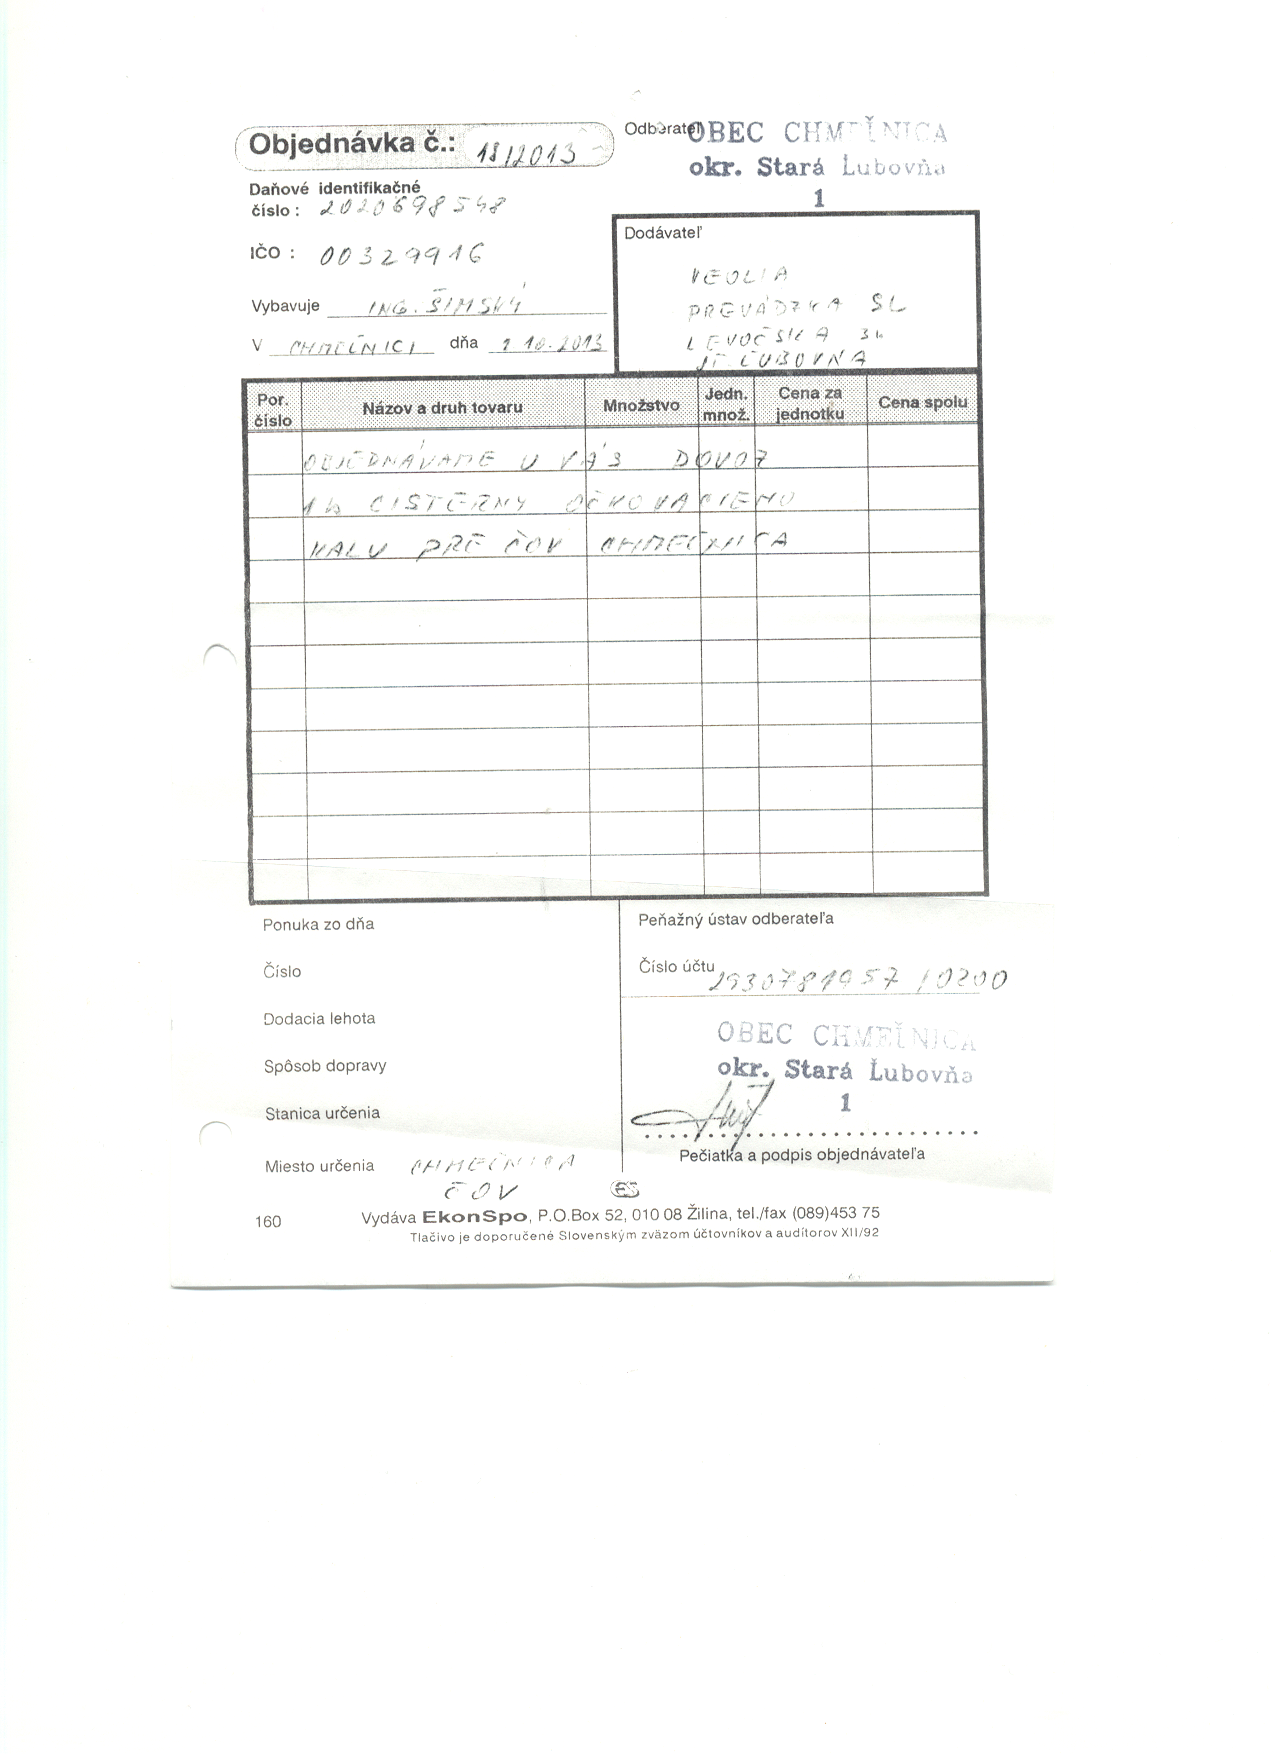 Objednávka č.: 18/2013
Odberateľ OBEC CHMEĽNICA
okr. Stará Ľubovňa
1
Daňové identifikačné
číslo : 2020698548
IČO : 00329916
Vybavuje ING. ŠIMSKÝ
V CHMEĽNICI dňa 10.2013
Dodávateľ
VEOLIA
PREVÁDZKA SL
LEVOČSKÁ
ST. ĽUBOVŇA
Por. číslo Názov a druh tovaru Množstvo Jedn. množ. Cena za jednotku Cena spolu
OBJEDNÁVAME U VÁS DOVOZ
CISTERNY OČKOVACIEHO
KALU PRE ČOV CHMEĽNICA
Ponuka zo dňa
Číslo
Dodacia lehota
Spôsob dopravy
Stanica určenia
Miesto určenia CHMEĽNICA
ČOV
Peňažný ústav odberateľa
Číslo účtu 2930781957 /0200
OBEC CHMEĽNICA
okr. Stará Ľubovňa
1
Pečiatka a podpis objednávateľa
160
Vydáva EkonSpo, P.O.Box 52, 010 08 Žilina, tel./fax (089)453 75
Tlačivo je doporučené Slovenským zväzom účtovníkov a audítorov XII/92